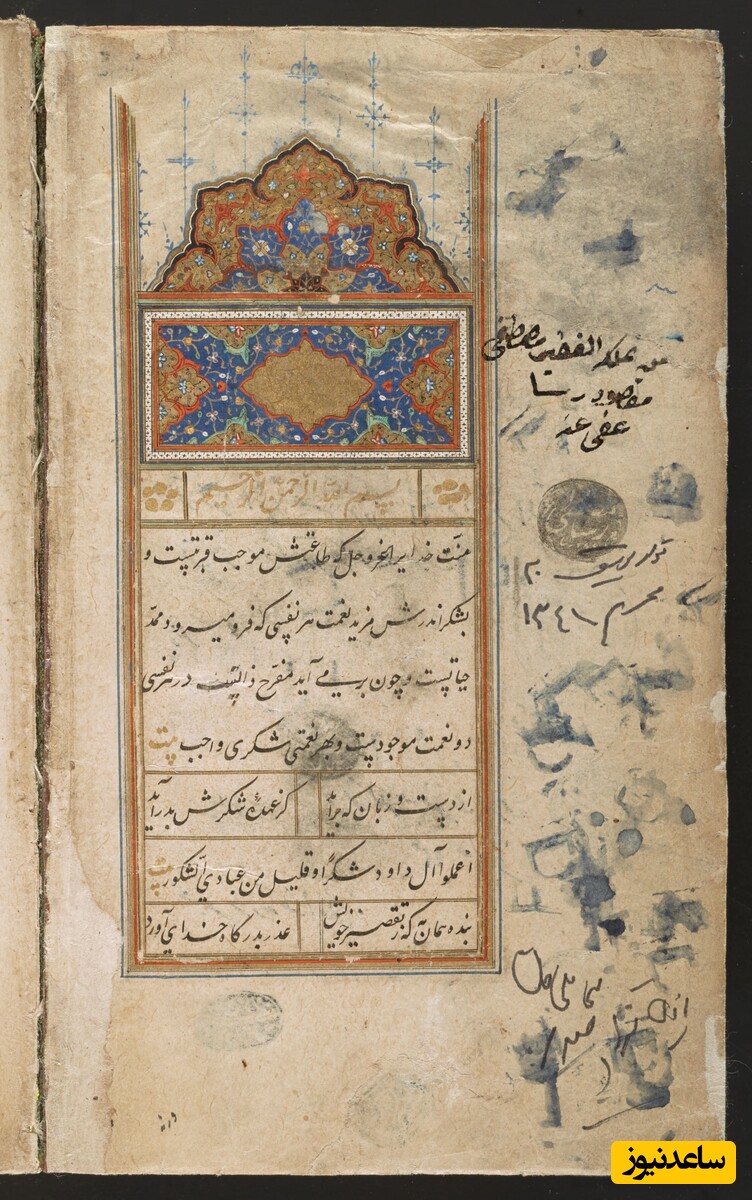 بسم الله الرحمن الرحیم
منّت خدایرا عزوجل که طاعتش موجب قربتست و
بشکر اندرش مزید نعمت هر نفسی که فرو میرود ممدّ
حیاتست و چون بر می آید مفرّح ذات پس در هر نفسی
دو نعمت موجودست و بهر نعمتی شکری واجب بیت
از دست و زبان که برآید کز عهدهٔ شکرش بدرآید
اعملوا آل داود شکرًا و قلیل من عبادی الشکور بیت
بنده همان به که ز تقصیر خویش عذر بدرگاه خدای آورد
من تملک الفقیر مصطفی
مقصود رسا
عفی عنه
محرم ۱۳٤۱
ساعدنیوز